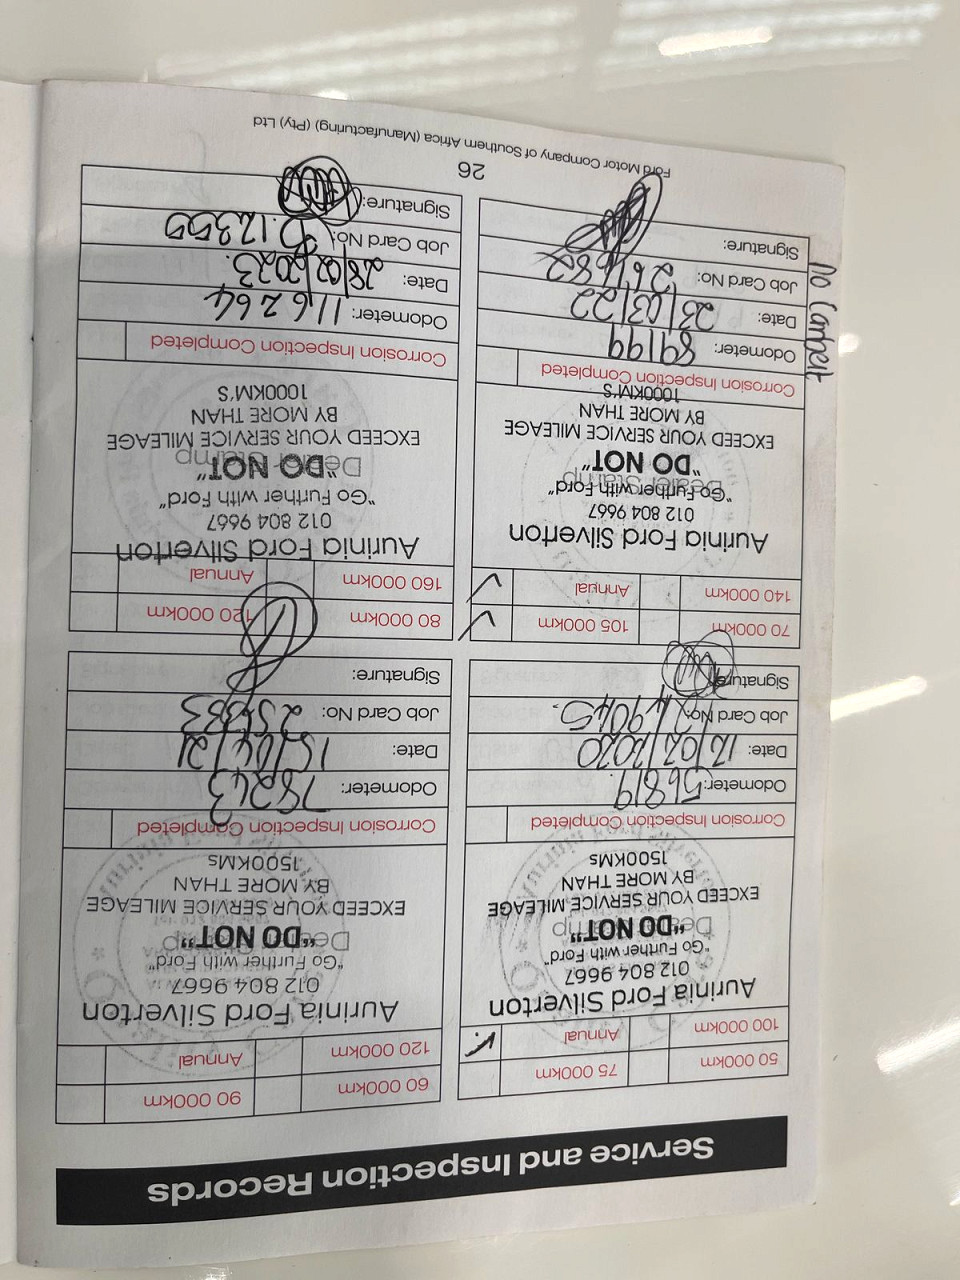 Service and Inspection Records
50 000km 75 000km
100 000km Annual
Aurinia Ford Silverton
012 804 9667
"Go Further with Ford"
Dealer Stamp
"DO NOT"
EXCEED YOUR SERVICE MILEAGE
BY MORE THAN
1500KMs
Corrosion Inspection Completed
Odometer: 56819
Date: 12/02/2020
Job Card No:
Signature:
60 000km 90 000km
120 000km Annual
Aurinia Ford Silverton
012 804 9667
"Go Further with Ford"
Dealer Stamp
"DO NOT"
EXCEED YOUR SERVICE MILEAGE
BY MORE THAN
1500KMs
Corrosion Inspection Completed
Odometer: 78243
Date: 15/04/21
Job Card No:
Signature:
70 000km 105 000km
140 000km Annual
Aurinia Ford Silverton
012 804 9667
"Go Further with Ford"
Dealer Stamp
"DO NOT"
EXCEED YOUR SERVICE MILEAGE
BY MORE THAN
1000KM'S
Corrosion Inspection Completed
Odometer: 89199
Date: 23/03/22
Job Card No: 261682
Signature:
No
80 000km 120 000km
160 000km Annual
Aurinia Ford Silverton
012 804 9667
"Go Further with Ford"
Dealer Stamp
"DO NOT"
EXCEED YOUR SERVICE MILEAGE
BY MORE THAN
1000KM'S
Corrosion Inspection Completed
Odometer: 116264
Date: 28/02/2023.
Job Card No:
Signature:
26
Ford Motor Company of Southern Africa (Manufacturing) (Pty) Ltd